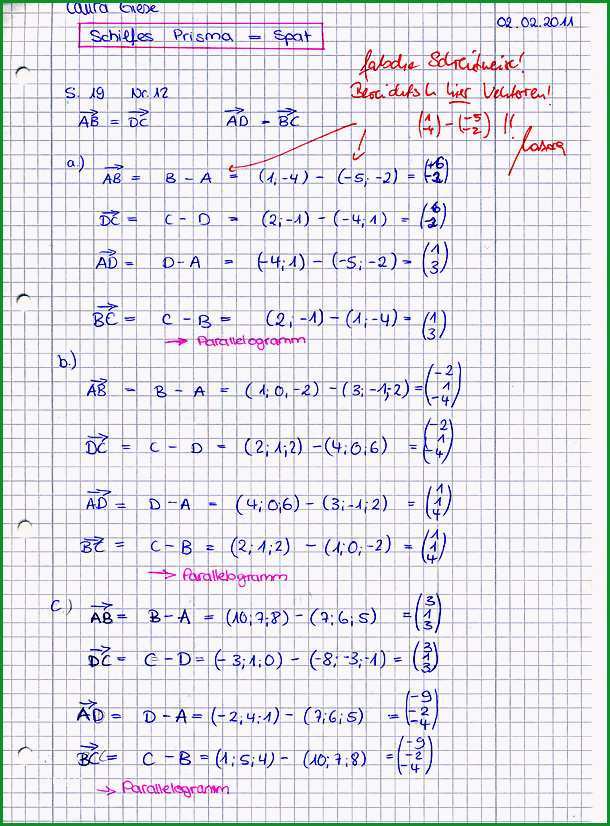 Laura Giese
02.02.2011
Schiefes Prisma = Spat
falsche Schreibweise!
S. 19 Nr. 12
hier Vektoren!
AB⃗ = DC⃗ AD⃗ = BC⃗
(1 -4) - (-5 -2) !!
a.) AB⃗ = B - A = (1, -4) - (-5; -2) = (+6 -2)
DC⃗ = C - D = (2; -1) - (-4; 1) = (6 -2)
AD⃗ = D - A = (-4; 1) - (-5; -2) = (1 3)
BC⃗ = C - B = (2; -1) - (1; -4) = (1 3)
→ Parallelogramm
b.)
AB⃗ = B - A = (1; 0, -2) - (3; -1; 2) = (-2 1 -4)
DC⃗ = C - D = (2; 1; 2) - (4; 0; 6) = (-2 1 -4)
AD⃗ = D - A = (4; 0; 6) - (3; -1; 2) = (1 1 4)
BC⃗ = C - B = (2; 1; 2) - (1; 0; -2) = (1 1 4)
→ Parallelogramm
c.) AB⃗ = B - A = (10; 7; 8) - (7; 6; 5) = (3 1 3)
DC⃗ = C - D = (-3; 1; 0) - (-8; -3; -1) = (3 1 3)
AD⃗ = D - A = (-2; 4; 1) - (7; 6; 5) = (-9 -2 -4)
BC⃗ = C - B = (1; 5; 4) - (10; 7; 8) = (-9 -2 -4)
→ Parallelogramm